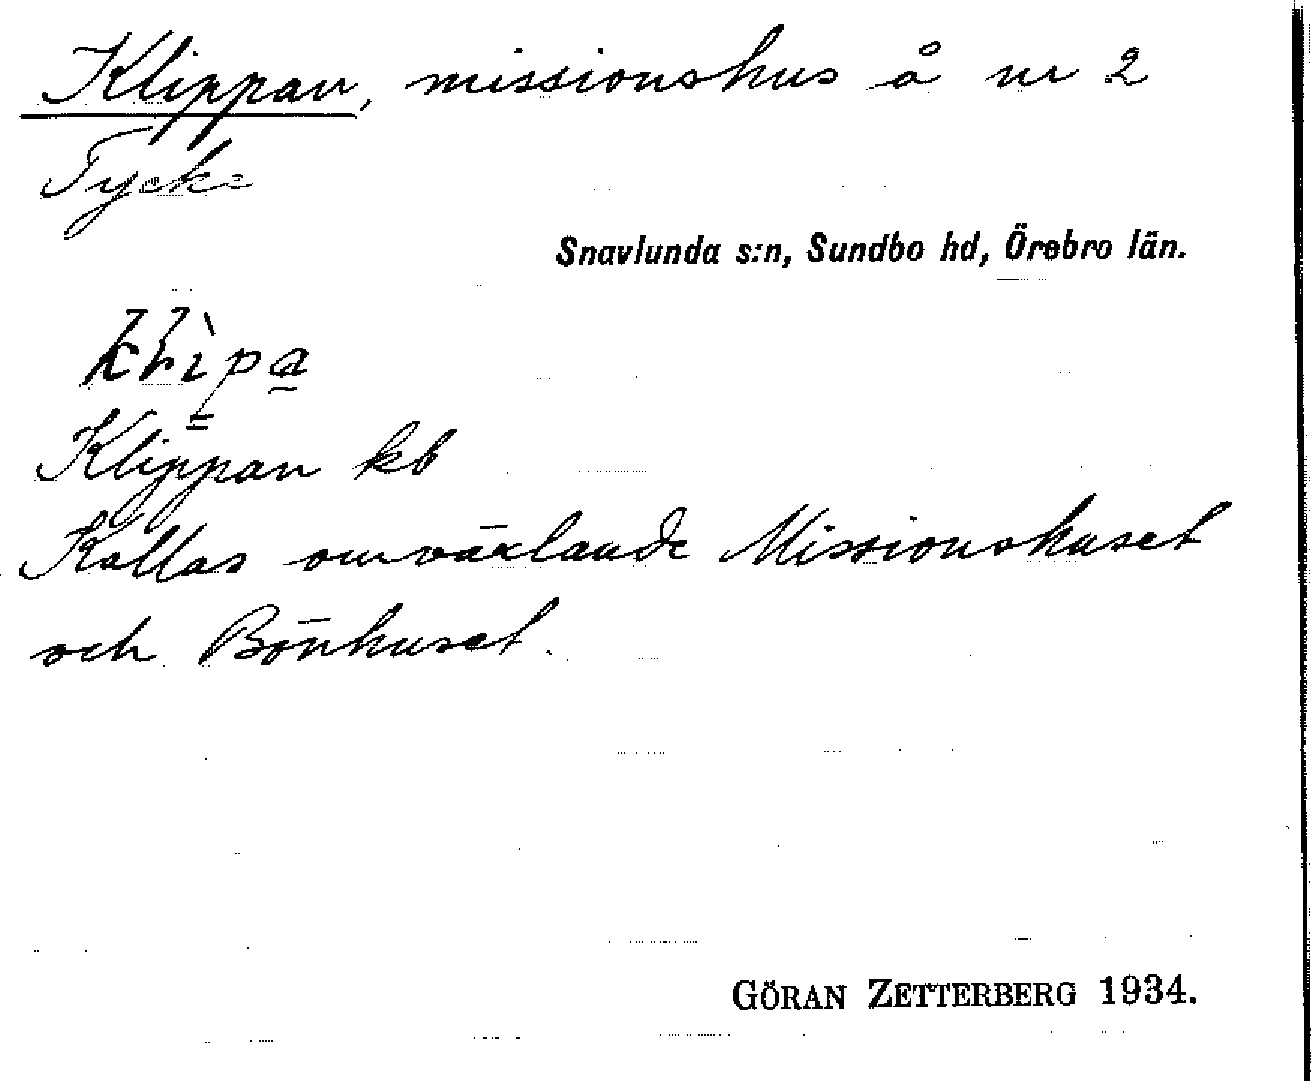 Klippan, missionshus å nr 2
Tycke
Snavlunda s:n, Sundbo hd, Örebro län.
Klippan kb
Kallas omväxlande Missionshuset
och Bönhuset.
GÖRAN ZETTERBERG 1934.